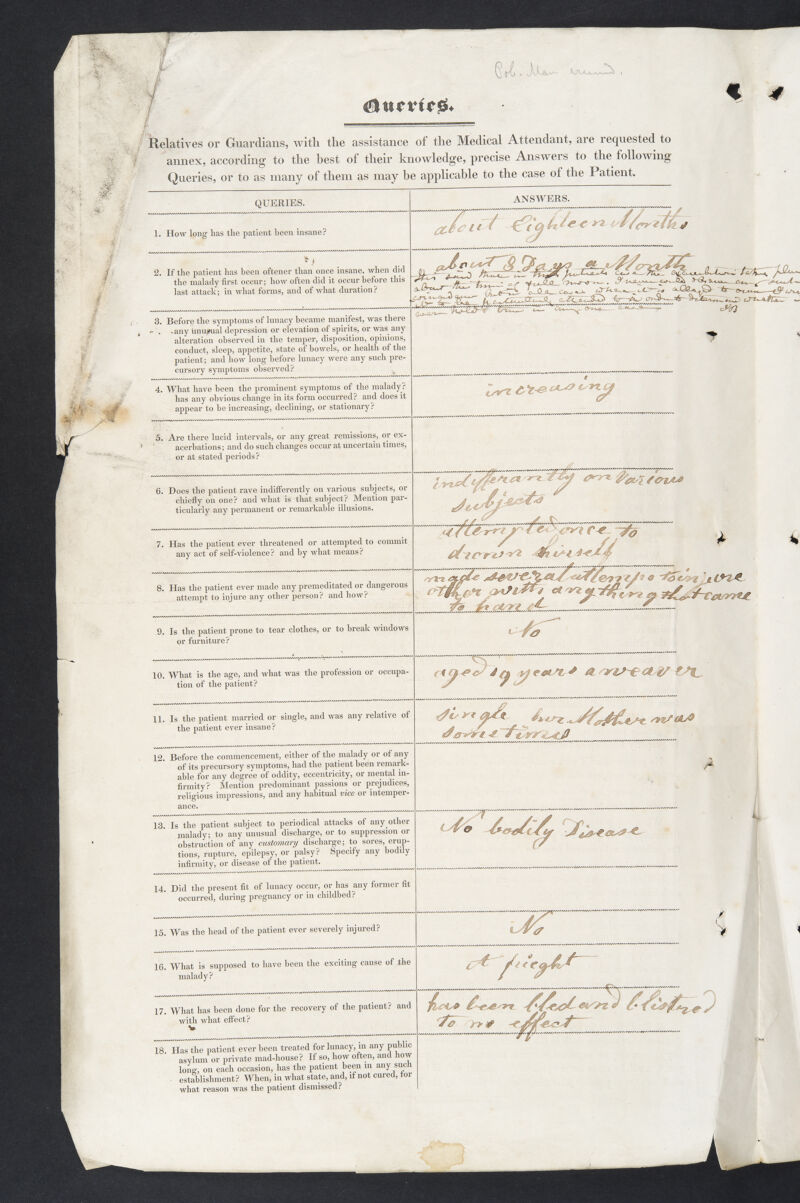 Queries.
Relatives or Guardians, with the assistance of the Medical Attendant, are requested to
annex, according to the best of their knowledge, precise Answers to the following
Queries, or to as many of them as may be applicable to the case of the Patient.
QUERIES.
ANSWERS.
1. How long has the patient been insane?
about Eighteen Months
2. If the patient has been oftener than once insane, when did
the malady first occur; how often did it occur before this
last attack; in what forms, and of what duration?
about 8 Days a Month
It is said that in this patients case the exacerbation takes place
about the time of full moon
3. Before the symptoms of lunacy became manifest, was there
any unusual depression or elevation of spirits, or was any
alteration observed in the temper, disposition, opinions,
conduct, sleep, appetite, state of bowels, or health of the
patient; and how long before lunacy were any such pre-
cursory symptoms observed?
4. What have been the prominent symptoms of the malady?
has any obvious change in its form occurred? and does it
appear to be increasing, declining, or stationary?
increasing
5. Are there lucid intervals, or any great remissions, or ex-
acerbations; and do such changes occur at uncertain times,
or at stated periods?
6. Does the patient rave indifferently on various subjects, or
chiefly on one? and what is that subject? Mention par-
ticularly any permanent or remarkable illusions.
indifferantly on Various
Subjects
7. Has the patient ever threatened or attempted to commit
any act of self-violence? and by what means?
attempted once to
drown hirself
8. Has the patient ever made any premeditated or dangerous
attempt to injure any other person? and how?
made several attemps to injure
other with anything that came
to hand
9. Is the patient prone to tear clothes, or to break windows
or furniture?
No
10. What is the age, and what was the profession or occupa-
tion of the patient?
aged 19 years a weaver
11. Is the patient married or single, and was any relative of
the patient ever insane?
single hir Mother was
Sometimes
12. Before the commencement, either of the malady or of any
of its precursory symptoms, had the patient been remark-
able for any degree of oddity, eccentricity, or mental in-
firmity? Mention predominant passions or prejudices,
religious impressions, and any habitual vice or intemper-
ance.
13. Is the patient subject to periodical attacks of any other
malady; to any unusual discharge, or to suppression or
obstruction of any customary discharge; to sores, erup-
tions, rupture, epilepsy, or palsy? Specify any bodily
infirmity, or disease of the patient.
No bodily Disease
14. Did the present fit of lunacy occur, or has any former fit
occurred, during pregnancy or in childbed?
15. Was the head of the patient ever severely injured?
No
16. What is supposed to have been the exciting cause of the
malady?
A frieght
17. What has been done for the recovery of the patient? and
with what effect?
has been bled and blistred
to no effect
18. Has the patient ever been treated for lunacy, in any public
asylum or private mad-house? If so, how often, and how
long, on each occasion, has the patient been in any such
establishment? When, in what state, and, if not cured, for
what reason was the patient dismissed?